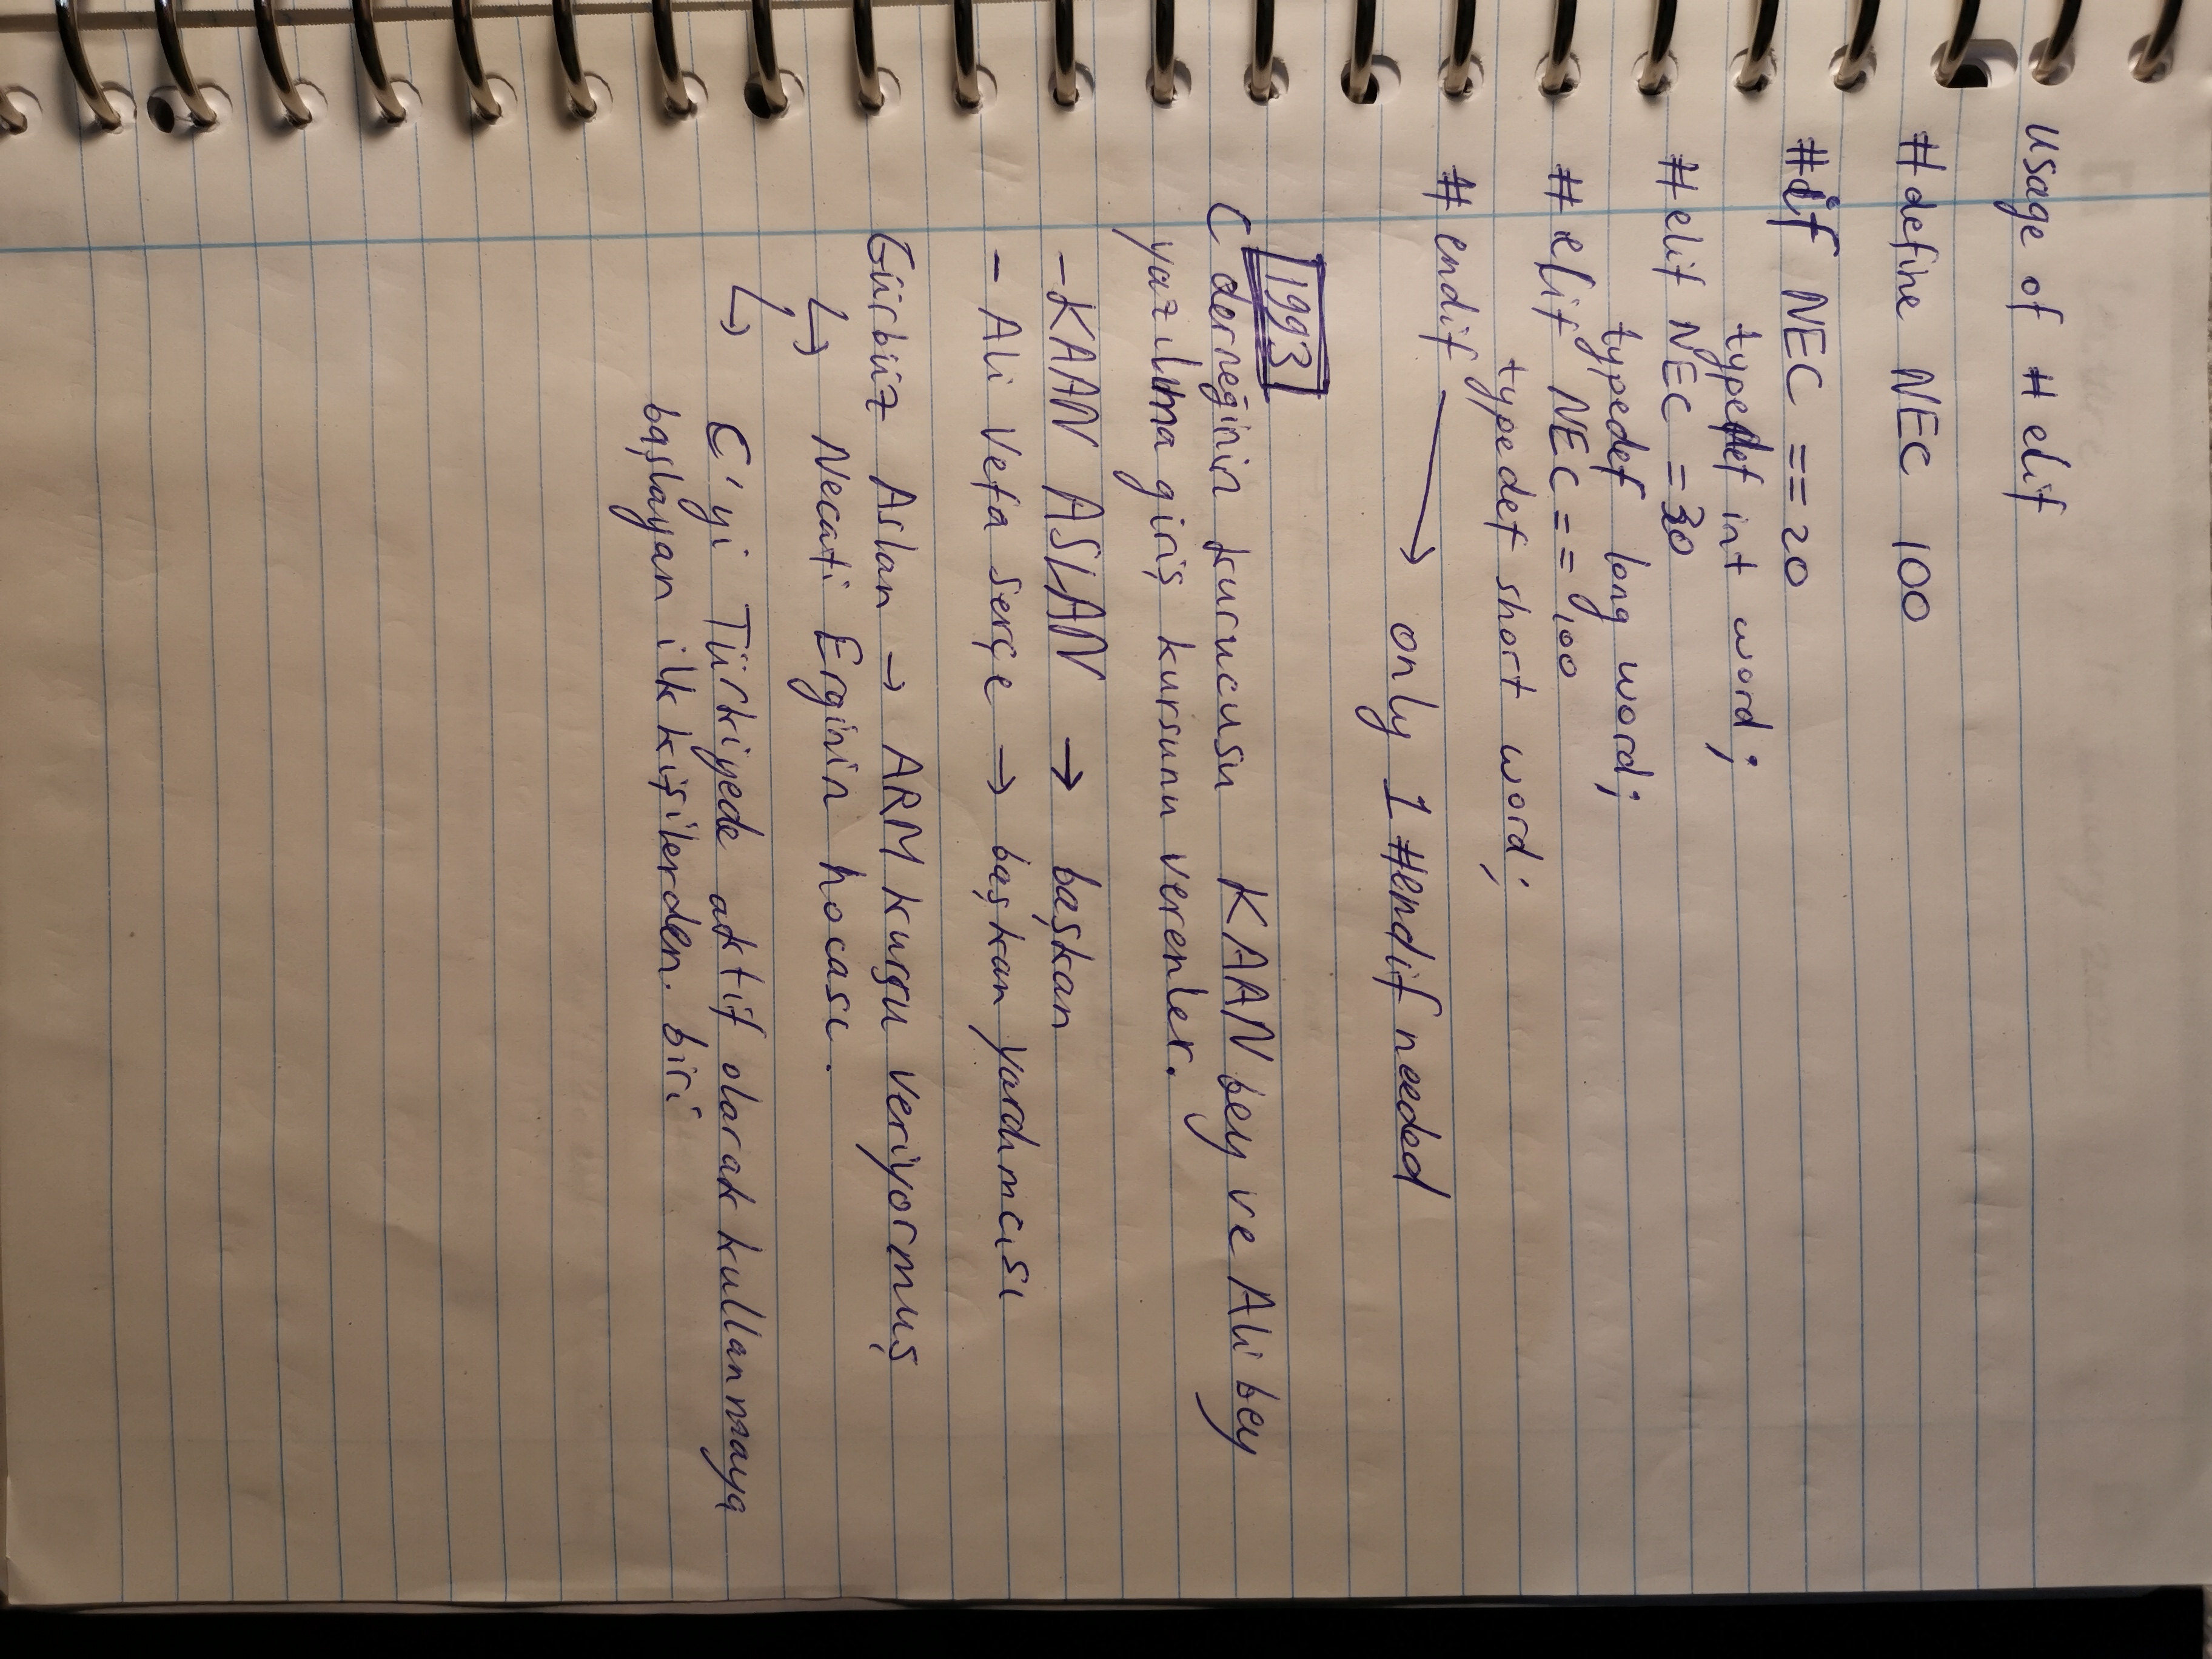 Usage of # elif
#define NEC 100
#if NEC == 20
typedef int word;
#elif NEC = 30
typedef long word;
# elif NEC == 100
typedef short word;
# endif → only 1 #endif needed
1993
C derneğinin kurucusu KAAN bey ve Ali bey
yazılıma giriş kursunu verenler.
- KAAN ASLAN → başkan
- Ali Vefa Serçe → başkan yardımcısı
Gürbüz Aslan → ARM kursu veriyormuş
↳ Necati Erginin hocası.
↳ C'yi Türkiyede aktif olarak kullanmaya
başlayan ilk kişilerden. biri